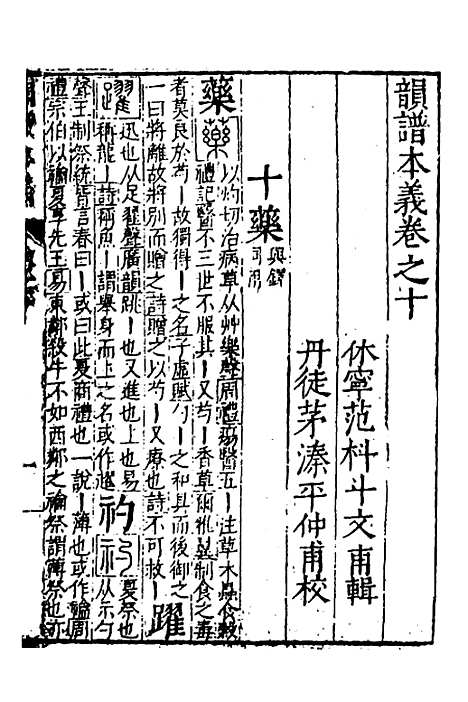 韻譜本義卷之十
休寧范科斗文甫輯
丹徒茅溱平仲甫校
十藥 與鐸同用
藥 藥 以灼切治病草从艸樂聲周禮瘍醫五丨注草木蟲石穀
禮記醫不三世不服其丨又芍丨香草爾雅異制食之毒
者莫良於芍丨故獨得丨之名子虛賦勺丨之和具而後御之
一曰將離故將別而贈之詩贈之以芍丨又療也詩不可救丨 躍
躍 迅也从足翟聲廣韻跳丨也又進也上也易
丨龍丨詩稱魚丨謂舉身而上之名或作 礿 礿 夏祭也从示勺
聲王制祭統皆言春曰丨或曰此夏商禮也一說丨薄也或作禴周
禮宗伯以禴夏享先王易東鄰殺牛不如西鄰之禴祭謂薄祭也亦